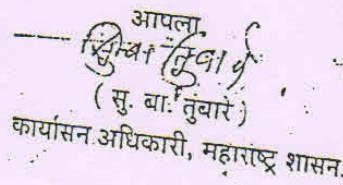 आपला
( सु. बा. तुवारे )
कार्यासन अधिकारी, महाराष्ट्र शासन.